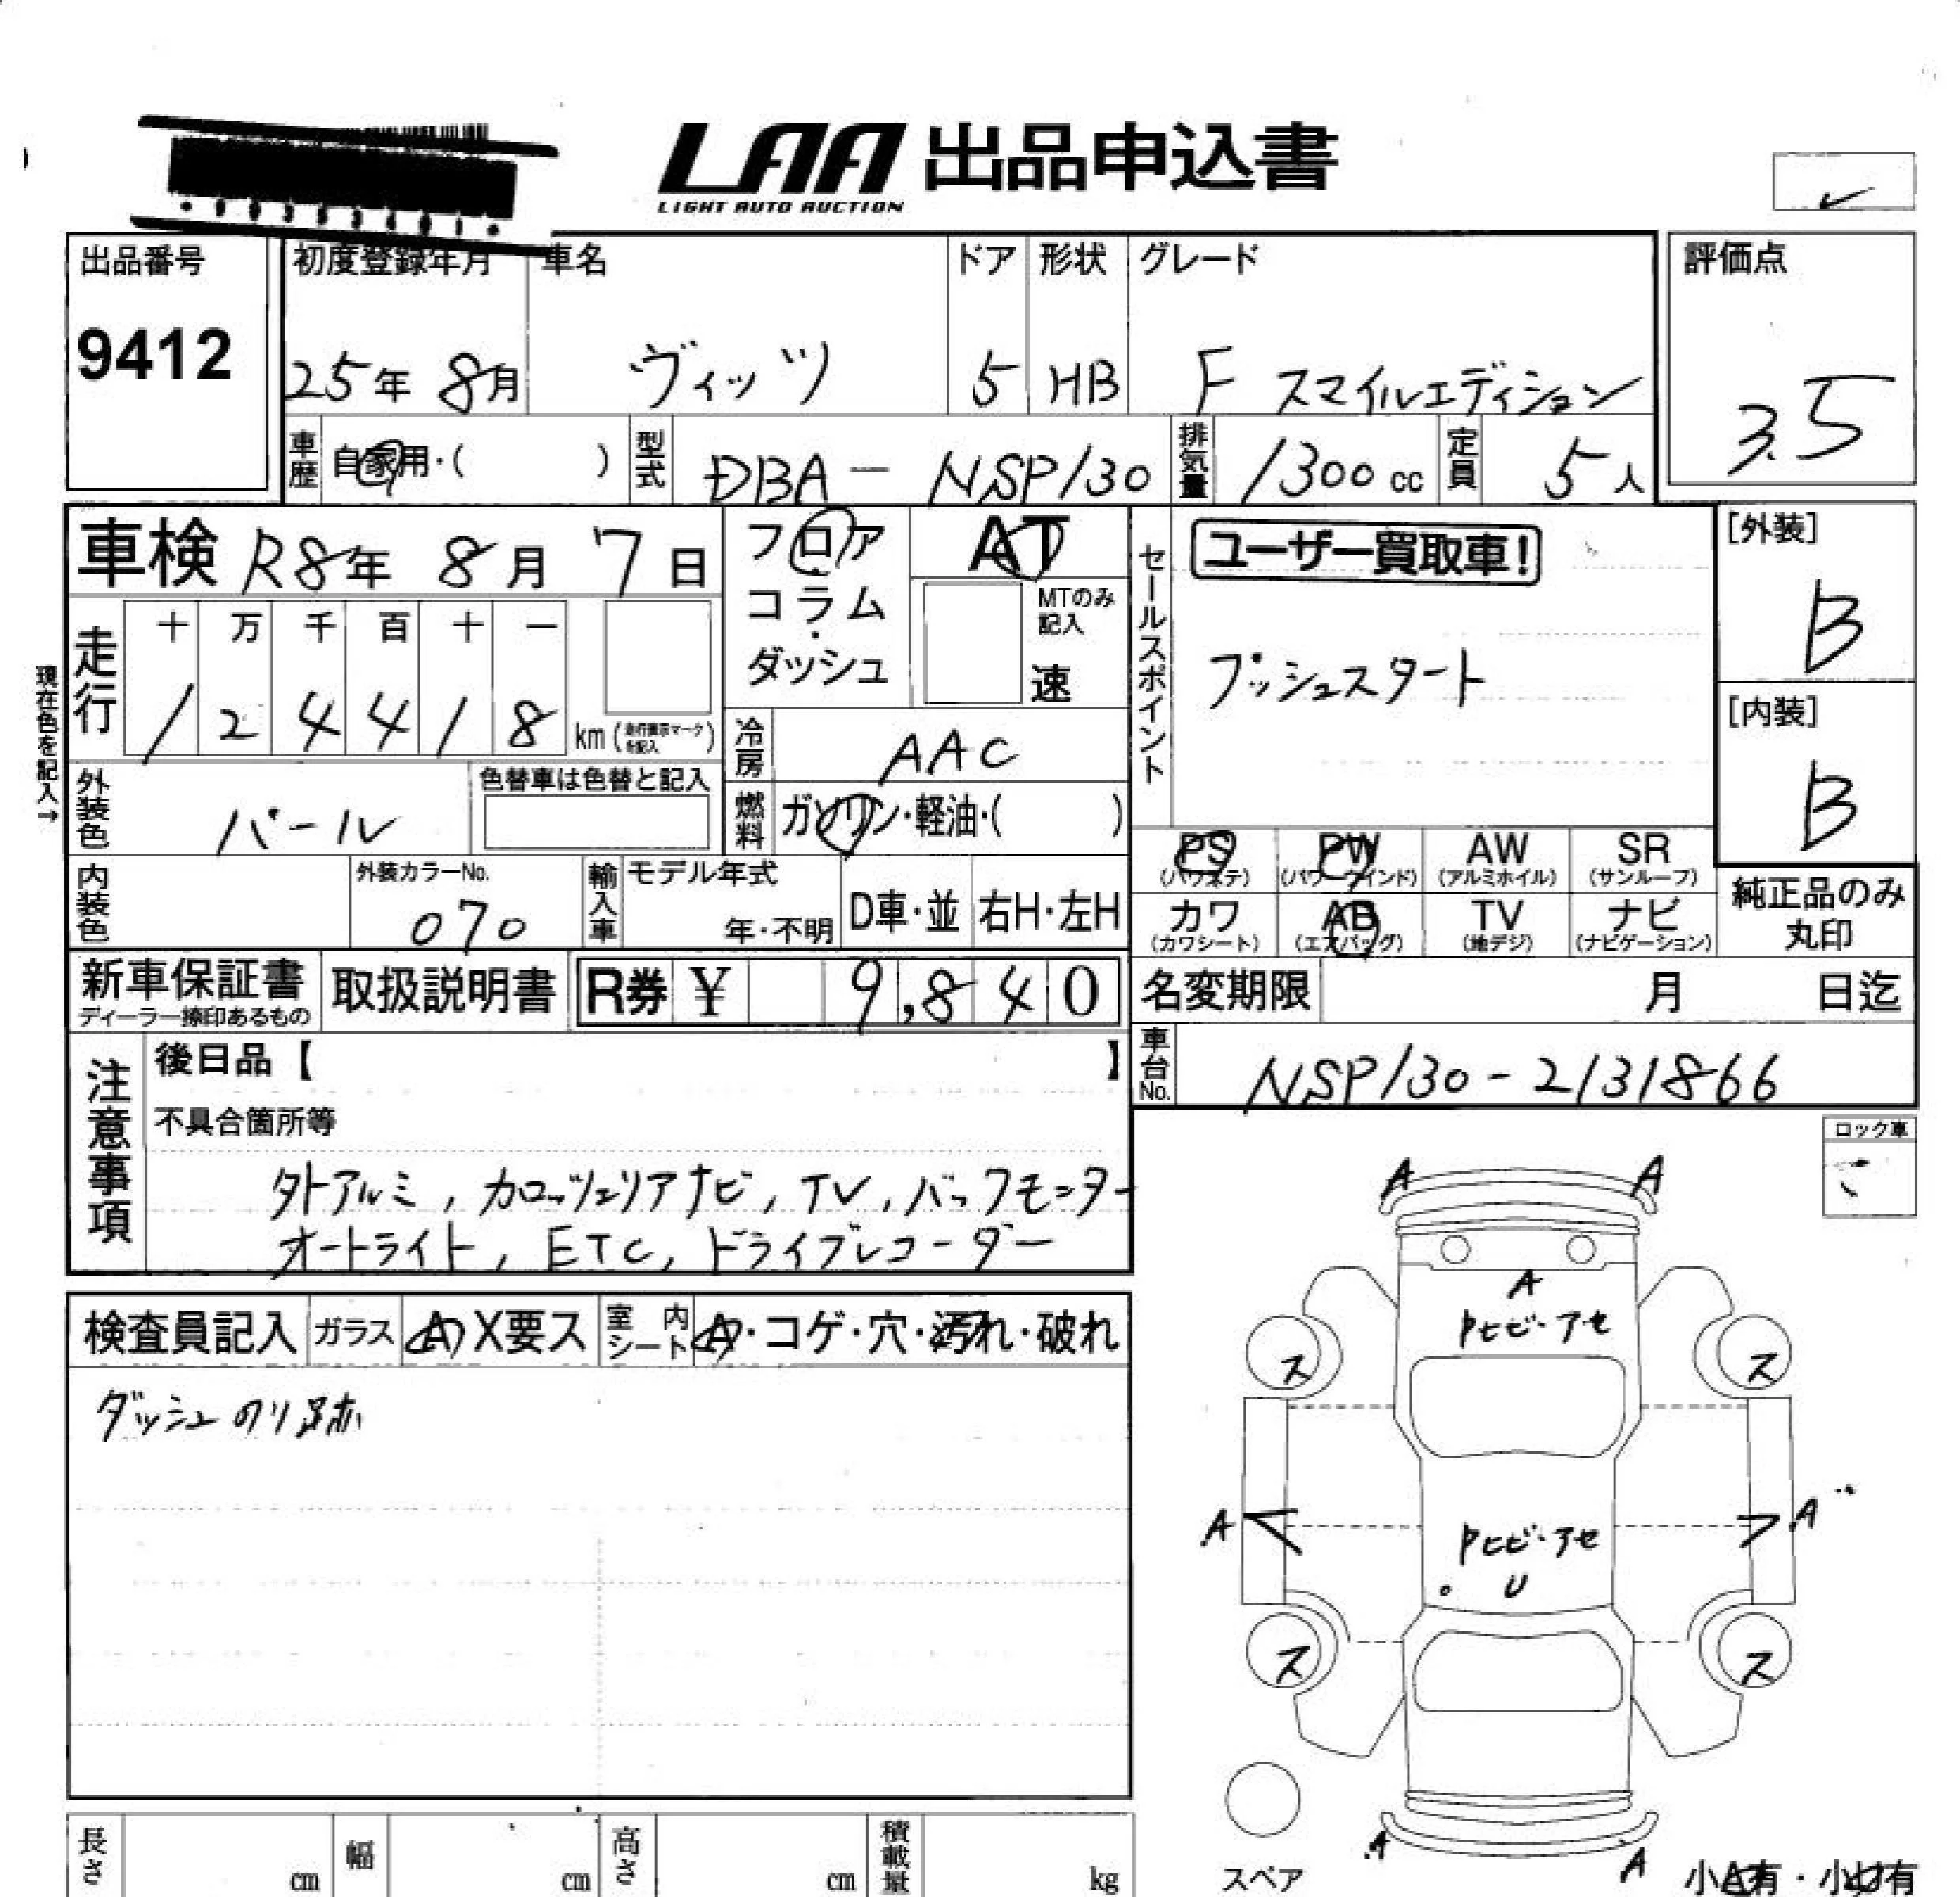 LAA 出品申込書
LIGHT AUTO AUCTION
出品番号
9412
初度登録年月
25年 8月
車名
ヴィッツ
ドア
5
形状
HB
グレード
F スマイルエディション
評価点
3.5
車歴 自家用・( )
型式 DBA－NSP130
排気量 1300 cc
定員 5人
車検 R8年 8月 7日
フロア・コラム・ダッシュ
AT
MTのみ記入
速
走行
十 万 千 百 十 一
1 2 4 4 1 8 km (走行表示マークを記入)
現在色を記入→
冷房 AAC
燃料 ガソリン・軽油・( )
外装色 パール
色替車は色替と記入
内装色
外装カラーNo.
070
輸入車 モデル年式
年・不明
D車・並
右H・左H
セールスポイント
ユーザー買取車!
プッシュスタート
[外装]
B
[内装]
B
PS (パワステ)
PW (パワーウインド)
AW (アルミホイル)
SR (サンルーフ)
カワ (カワシート)
AB (エアバッグ)
TV (地デジ)
ナビ (ナビゲーション)
純正品のみ
丸印
新車保証書
ディーラー捺印あるもの
取扱説明書
R券 ¥ 9,840
名変期限 月 日迄
車台No. NSP130-2131866
注意事項
後日品【 】
不具合箇所等
外アルミ, カロッツェリアナビ, TV, バックモニター
オートライト, ETC, ドライブレコーダー
ロック車
検査員記入
ガラス A X要ス
室内シート A・コゲ・穴・汚れ・破れ
ダッシュのり跡
A A
A
Pヒビ・アセ
ス ス
A A
Pヒビ・アセ
U
ス ス
A A
スペア
小A有・小U有
長さ cm
幅 cm
高さ cm
積載量 kg